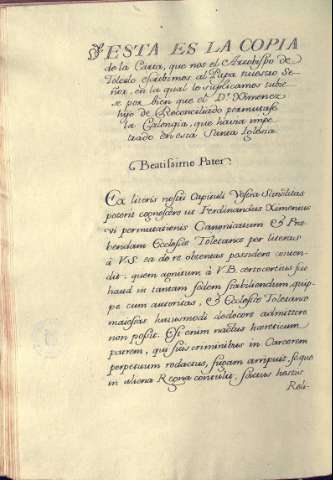 ESTA ES LA COPIA
de la Carta, que nos el Arzobispo de
Toledo escribimos al Papa nuestro Se-
ñor, en la qual le suplicamos tubie-
se por bien que el Dr. Ximenez
hijo de Reconciliado permutase
la Calongia, que havia impe-
trado en esta Santa Iglesia
Beatissime Pater
Ex literis nostri Capituli Vestra Sanctitas
poterit cognoscere ut Ferdinandus Ximenius
vi permutationis Canonicatum & Pre-
bendam Ecclesiæ Toletanæ per literas
à V.S. ea de re obtentas possidere conten-
dit: quem agnitum à V.B. certo certius sic
haud in tantam sedem stabiliendum, quip-
pe cum autoritas, & Ecclesiæ Toletanæ
maiestas huiusmodi dedecore admittere
non possit. Est enim nactus hæreticum
patrem, qui suis criminibus in Carcerem
perpetuum redactus, fugam arripuit, seque
in aliena Regna contulit.
Reli-